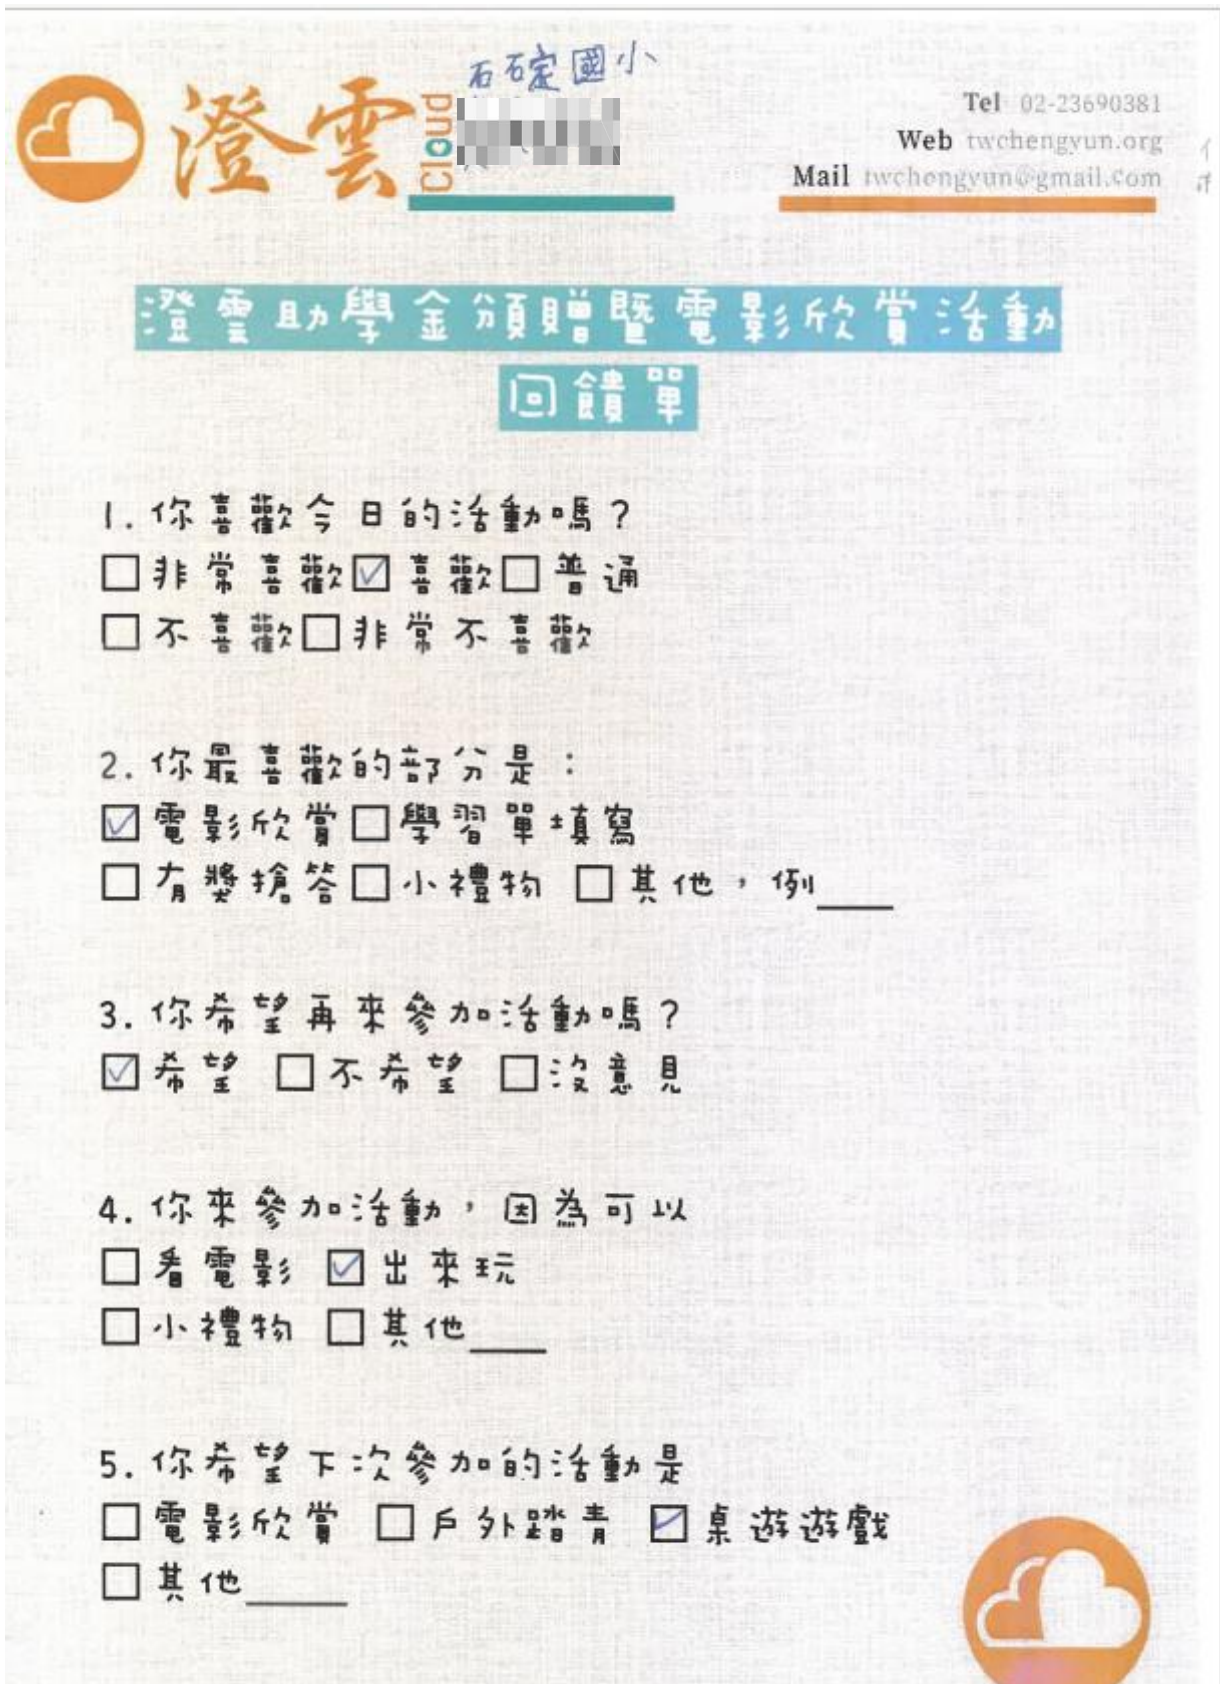 石碇國小
澄雲 Cloud
Tel 02-23690381
Web twchengyun.org
Mail twchengyun@gmail.com
澄雲助學金頒贈暨電影欣賞活動
回饋單
1.你喜歡今日的活動嗎?
□非常喜歡☑喜歡□普通
□不喜歡□非常不喜歡
2.你最喜歡的部分是:
☑電影欣賞□學習單填寫
□有獎搶答□小禮物 □其他,例___
3.你希望再來參加活動嗎?
☑希望 □不希望 □沒意見
4.你來參加活動,因為可以
□看電影 ☑出來玩
□小禮物 □其他___
5.你希望下次參加的活動是
□電影欣賞 □戶外踏青 ☑桌遊遊戲
□其他____